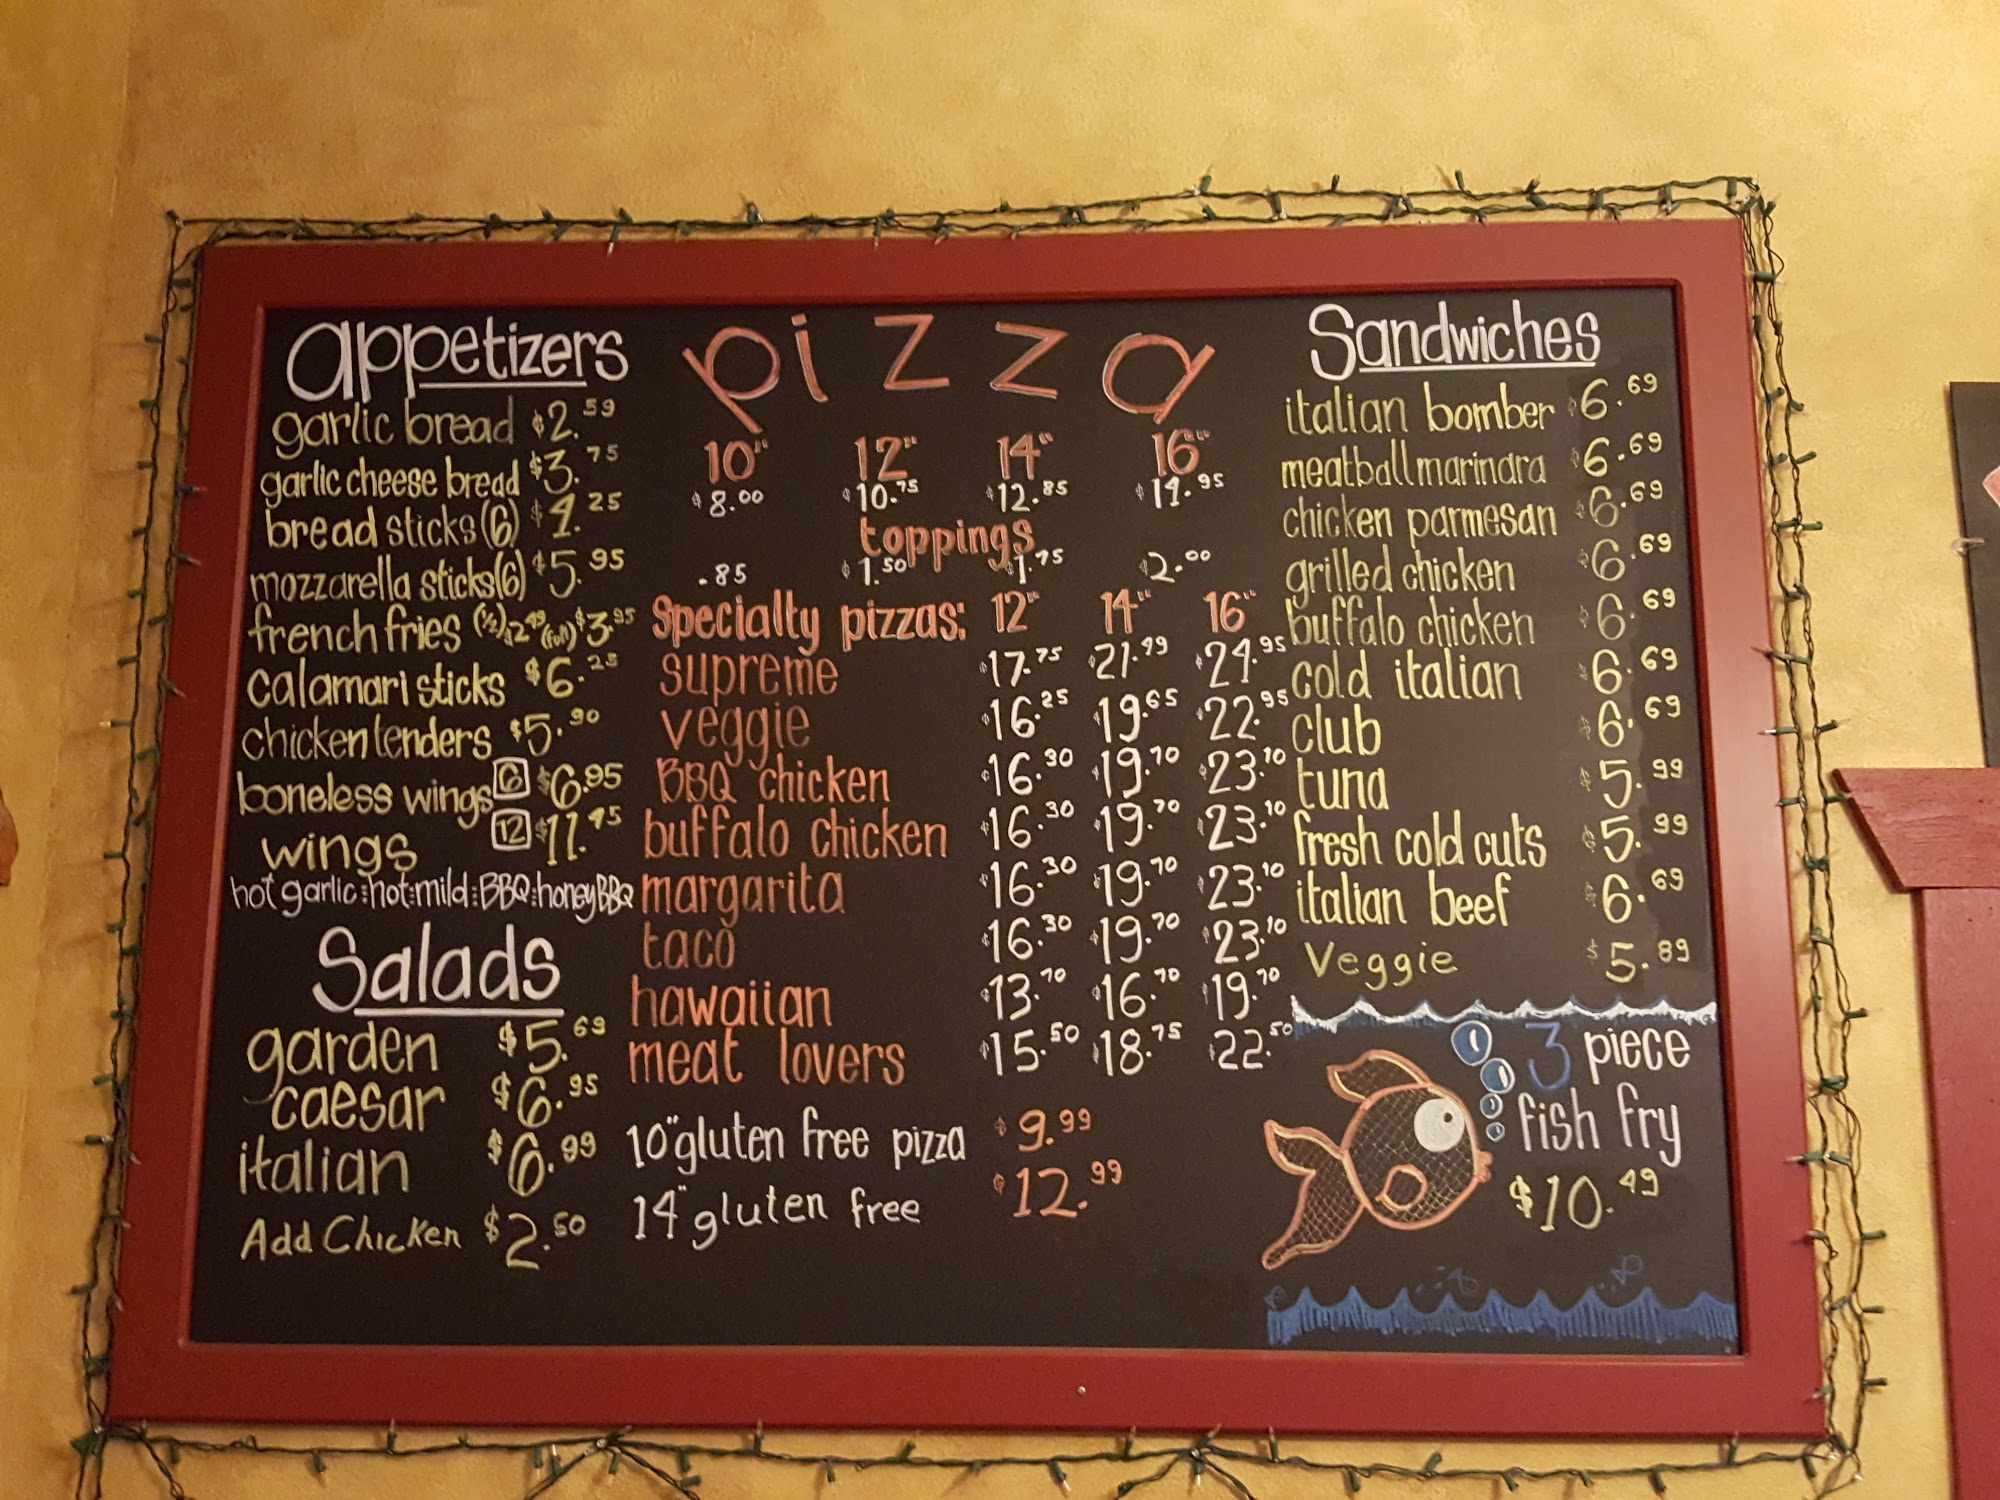 appetizers
garlic bread $2.59
garlic cheese bread $3.75
bread sticks (6) $4.25
mozzarella sticks (6) $5.95
french fries (½) $2.49 (full) $3.95
calamari sticks $6.25
chicken tenders $5.90
boneless wings 6 $6.95
wings 12 $11.45
hot garlic : hot : mild : BBQ : honey BBQ
Salads
garden $5.69
caesar $6.95
italian $6.99
Add Chicken $2.50
pizza
10" 12" 14" 16"
$8.00 $10.75 $12.85 $14.95
toppings
.85 $1.50 $1.75 $2.00
Specialty pizzas: 12" 14" 16"
supreme $17.75 $21.99 $24.95
veggie $16.25 $19.65 $22.95
BBQ chicken $16.30 $19.70 $23.10
buffalo chicken $16.30 $19.70 $23.10
margarita $16.30 $19.70 $23.10
taco $16.30 $19.70 $23.10
hawaiian $13.70 $16.70 $19.70
meat lovers $15.50 $18.75 $22.50
10" gluten free pizza $9.99
14" gluten free $12.99
Sandwiches
italian bomber $6.69
meatball marinara $6.69
chicken parmesan $6.69
grilled chicken $6.69
buffalo chicken $6.69
cold italian $6.69
club $6.69
tuna $5.99
fresh cold cuts $5.99
italian beef $6.69
Veggie $5.89
3 piece
fish fry
$10.49